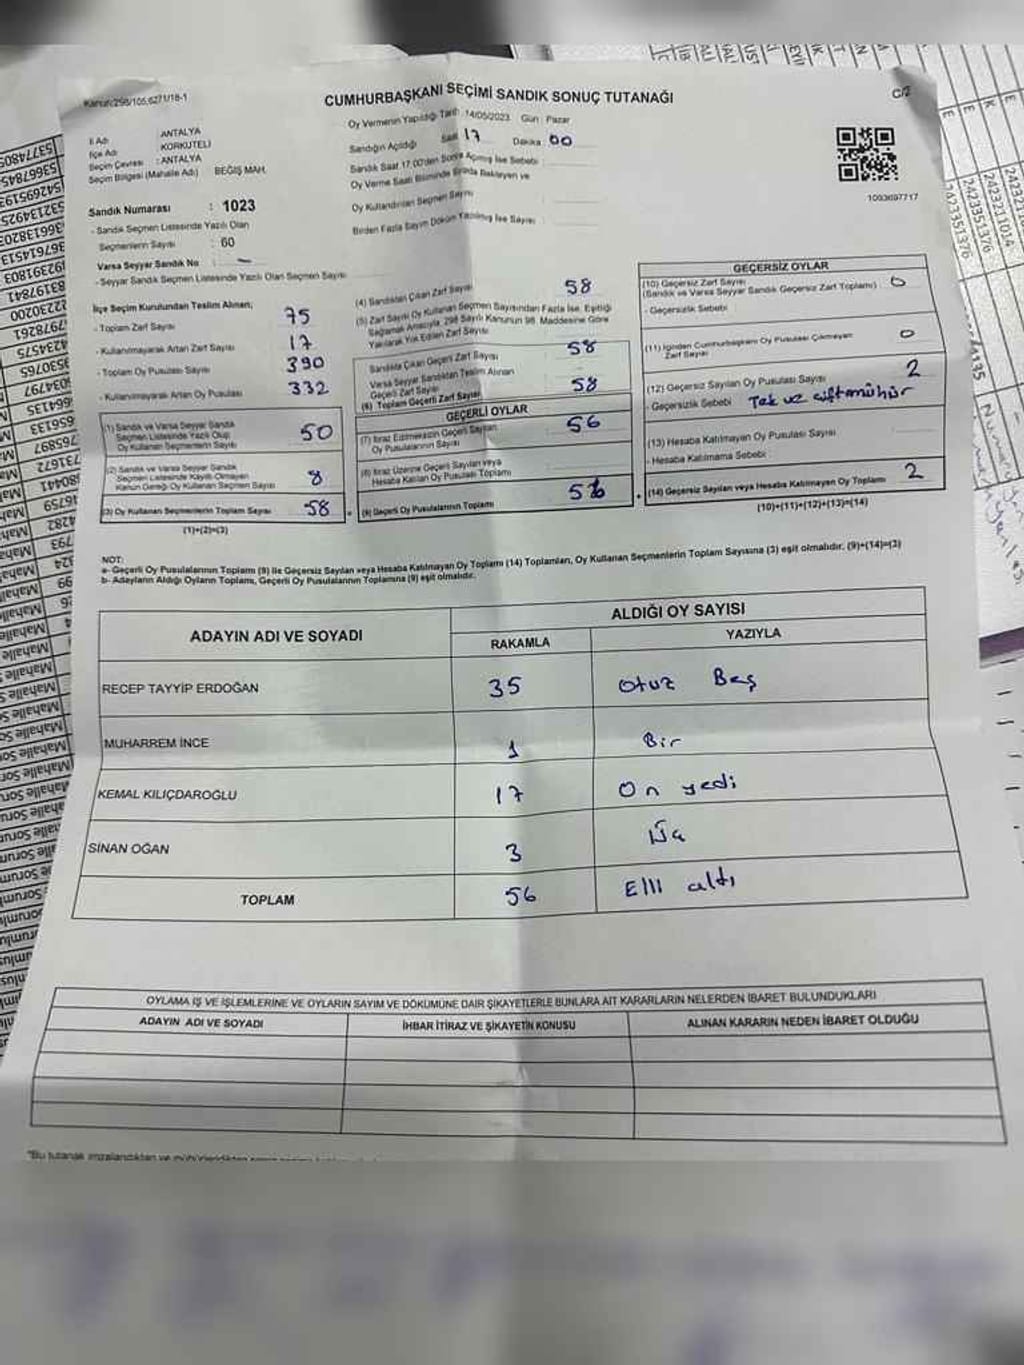 Kanun:298/105,6271/18-1
CUMHURBAŞKANI SEÇİMİ SANDIK SONUÇ TUTANAĞI
C/2
İl Adı : ANTALYA
İlçe Adı : KORKUTELİ
Seçim Çevresi : ANTALYA
Seçim Bölgesi (Mahalle Adı) BEĞİŞ MAH.
Sandık Numarası : 1023
- Sandık Seçmen Listesinde Yazılı Olan
Seçmenlerin Sayısı : 60
Varsa Seyyar Sandık No : -
- Seyyar Sandık Seçmen Listesinde Yazılı Olan Seçmen Sayısı
Oy Vermenin Yapıldığı Tarih 14/05/2023 Gün : Pazar
Sandığın Açıldığı Saat 17 Dakika 00
Sandık Saat 17.00'den Sonra Açılmış İse Sebebi
Oy Verme Saati Bitiminde Sırada Bekleyen ve
Oy Kullandırılan Seçmen Sayısı
Birden Fazla Sayım Döküm Yapılmış İse Sayısı
1093697717
İlçe Seçim Kurulundan Teslim Alınan;
- Toplam Zarf Sayısı 75
- Kullanılmayarak Artan Zarf Sayısı 17
- Toplam Oy Pusulası Sayısı 390
- Kullanılmayarak Artan Oy Pusulası 332
(1) Sandık ve Varsa Seyyar Sandık
Seçmen Listesinde Yazılı Olup
Oy Kullanan Seçmenlerin Sayısı 50
(2) Sandık ve Varsa Seyyar Sandık
Seçmen Listesinde Kayıtlı Olmayan
Kanun Gereği Oy Kullanan Seçmen Sayısı 8
(3) Oy Kullanan Seçmenlerin Toplam Sayısı 58
(1)+(2)=(3)
(4) Sandıktan Çıkan Zarf Sayısı 58
(5) Zarf Sayısı Oy Kullanan Seçmen Sayısından Fazla İse, Eşitliği
Sağlamak Amacıyla, 298 Sayılı Kanunun 98. Maddesine Göre
Yakılarak Yok Edilen Zarf Sayısı
Sandıkta Çıkan Geçerli Zarf Sayısı 58
Varsa Seyyar Sandıktan Teslim Alınan
Geçerli Zarf Sayısı
(6) Toplam Geçerli Zarf Sayısı 58
GEÇERLİ OYLAR
(7) İtiraz Edilmeksizin Geçerli Sayılan
Oy Pusulalarının Sayısı 56
(8) İtiraz Üzerine Geçerli Sayılan veya
Hesaba Katılan Oy Pusulası Toplamı
(9) Geçerli Oy Pusulalarının Toplamı 56
GEÇERSİZ OYLAR
(10) Geçersiz Zarf Sayısı
(Sandık ve Varsa Seyyar Sandık Geçersiz Zarf Toplamı) 0
- Geçersizlik Sebebi
(11) İçinden Cumhurbaşkanı Oy Pusulası Çıkmayan
Zarf Sayısı 0
(12) Geçersiz Sayılan Oy Pusulası Sayısı 2
- Geçersizlik Sebebi Tek ve çift mühür
(13) Hesaba Katılmayan Oy Pusulası Sayısı
- Hesaba Katılmama Sebebi
(14) Geçersiz Sayılan veya Hesaba Katılmayan Oy Toplamı 2
(10)+(11)+(12)+(13)=(14)
NOT:
a- Geçerli Oy Pusulalarının Toplamı (9) ile Geçersiz Sayılan veya Hesaba Katılmayan Oy Toplamı (14) Toplamları, Oy Kullanan Seçmenlerin Toplam Sayısına (3) eşit olmalıdır. (9)+(14)=(3)
b- Adayların Aldığı Oyların Toplamı, Geçerli Oy Pusulalarının Toplamına (9) eşit olmalıdır.
ADAYIN ADI VE SOYADI
ALDIĞI OY SAYISI
RAKAMLA YAZIYLA
RECEP TAYYİP ERDOĞAN 35 Otuz Beş
MUHARREM İNCE 1 Bir
KEMAL KILIÇDAROĞLU 17 On yedi
SİNAN OĞAN 3 Üç
TOPLAM 56 Elli altı
OYLAMA İŞ VE İŞLEMLERİNE VE OYLARIN SAYIM VE DÖKÜMÜNE DAİR ŞİKAYETLERLE BUNLARA AİT KARARLARIN NELERDEN İBARET BULUNDUKLARI
ADAYIN ADI VE SOYADI İHBAR İTİRAZ VE ŞİKAYETİN KONUSU ALINAN KARARIN NEDEN İBARET OLDUĞU